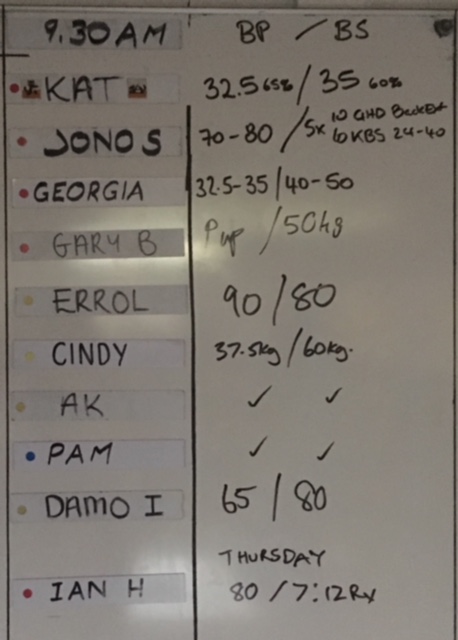 9.30AM BP / BS
KAT 32.5 65% / 35 60%
JONO S 70-80 / 5x 10 GHD BackExt
10 KBS 24-40
GEORGIA 32.5-35 / 40-50
GARY B / 50kg
ERROL 90 / 80
CINDY 37.5kg / 60kg.
AK ✓ ✓
PAM ✓ ✓
DAMO I 65 / 80
THURSDAY
IAN H 80 / 7:12 Rx